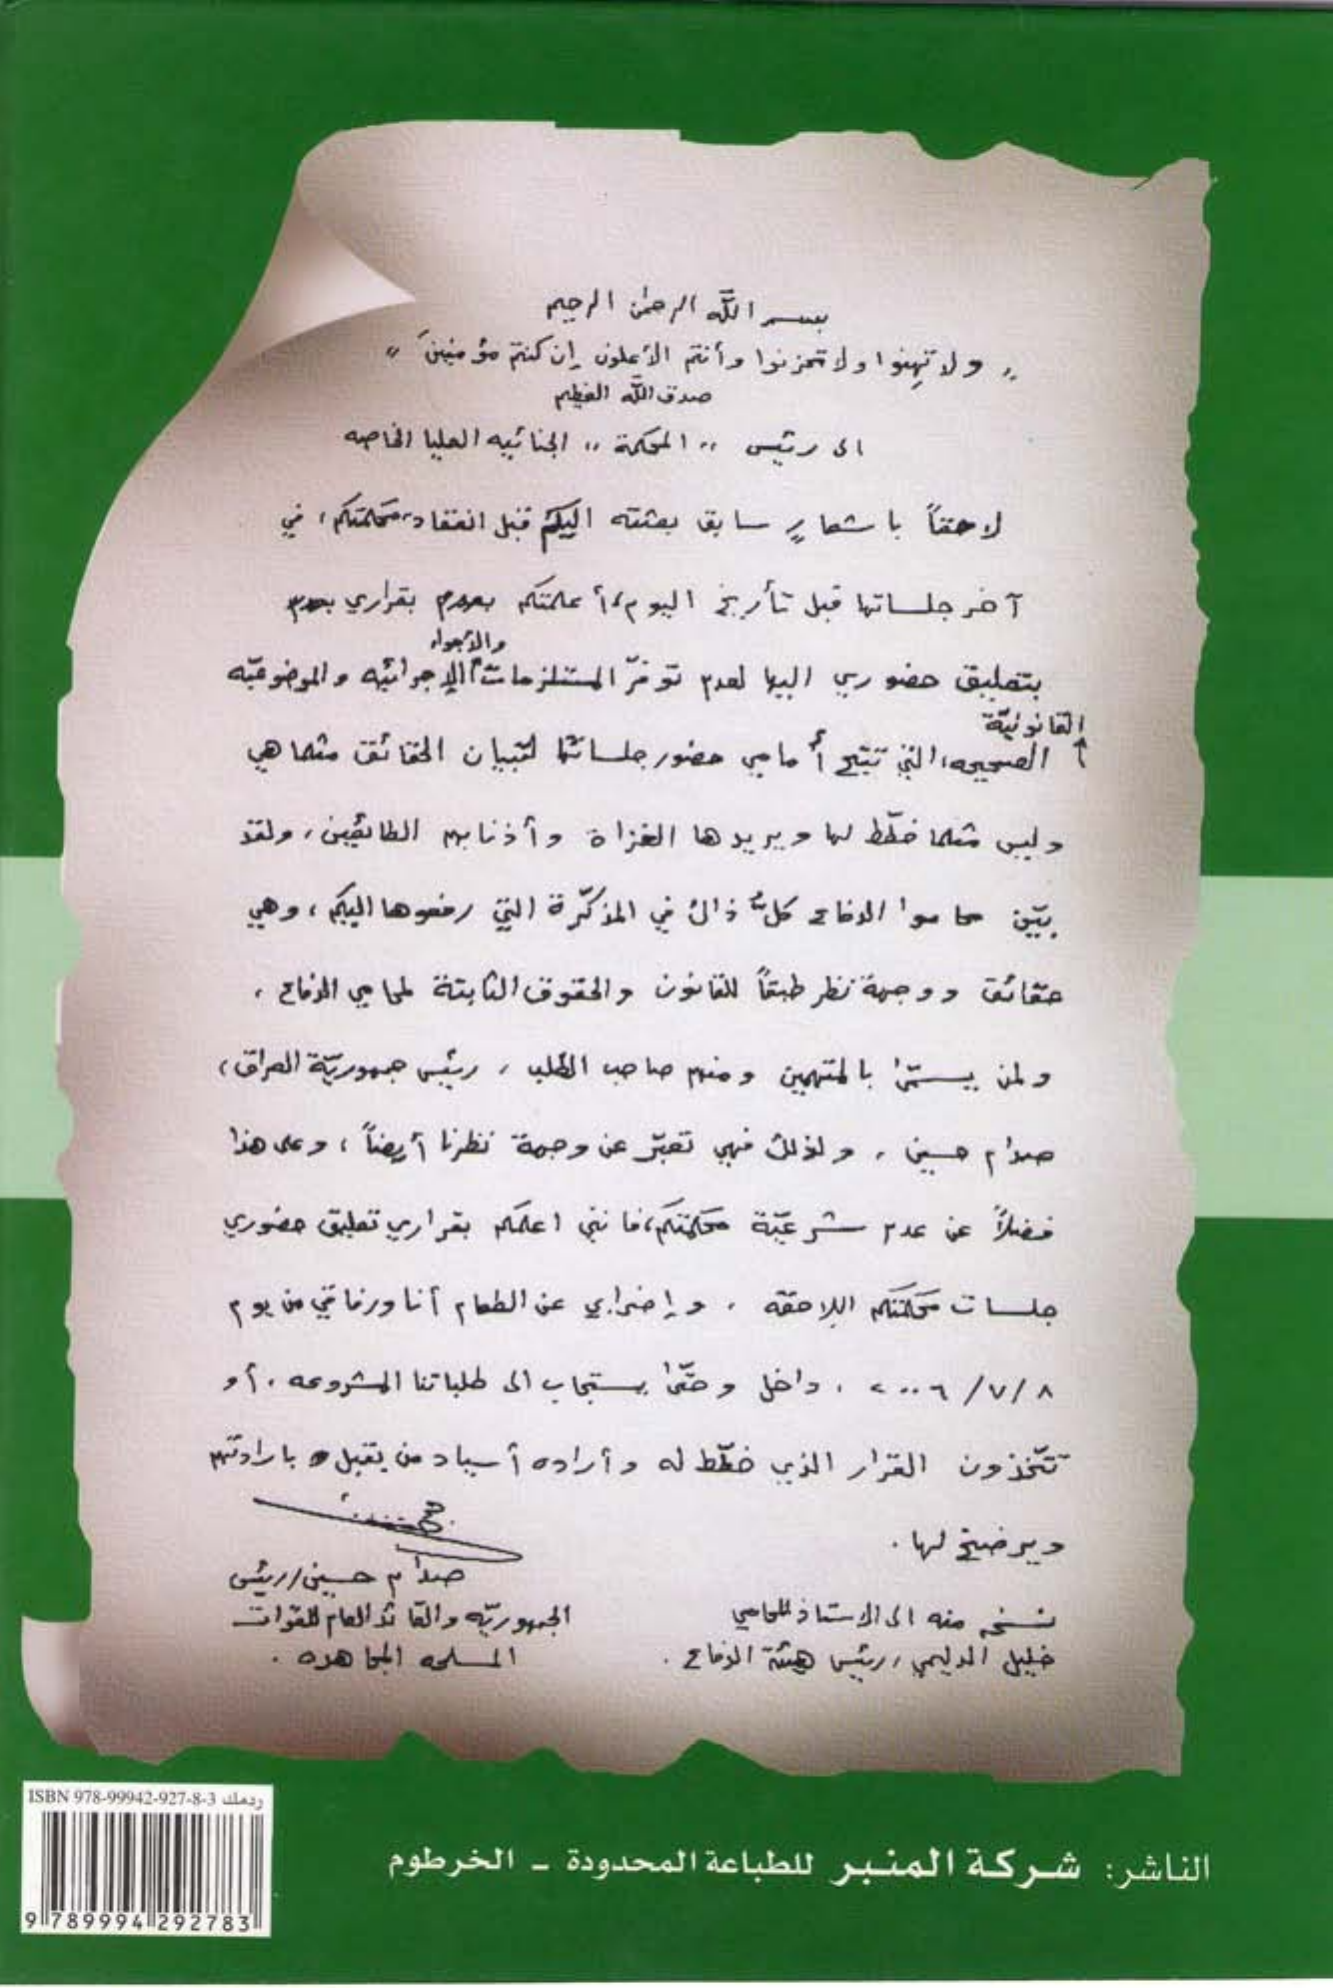 بسم الله الرحمن الرحيم
" ولا تهِنوا ولا تحزنوا وأنتم الأعلون إن كنتم مؤمنينَ "
صدق الله العظيم
الى رئيس " المحكمة " الجنائيه العليا الخاصه
لاحقاً باشعارٍ سابق بعثته اليكم قبل انعقاد محكمتكم، في
آخر جلساتها قبل تأريخ اليوم، أعلمتكم بقراري
والأجواء
بتعليق حضوري اليها لعدم توفّر المستلزمات الإجرائيه والموضوعيّه
القانونيّة
الصحيحه، التي تتيح أمامي حضور جلساتها لتبيان الحقائق مثلما هي
وليس مثلما خطّط لها ويريدها الغزاة وأذنابهم الطائفيين، ولقد
بيّن محاموا الدفاع كلّ ذالك في المذكّرة التي رفعوها اليكم، وهي
حقائق ووجهة نظر طبقاً للقانون والحقوق الثابتة لمحامي الدفاع،
ولمن يسمّوا بالمتهمين ومنهم صاحب الطلب، رئيس جمهوريّة العراق،
صدام حسين، ولذلك فهي تعبّر عن وجهة نظرنا أيضاً، وعلى هذا
فضلاً عن عدم شرعيّة محكمتكم، فانني اعلمكم بقراري تعليق حضوري
جلسات محكمتكم اللاحقه، وإضرابي عن الطعام أنا ورفاقي من يوم
٨/ ٧/ ٢٠٠٦، داخل وحتّى يستجاب الى طلباتنا المشروعه، أو
تتّخذون القرار الذي خطّط له وأراده أسياد من يقبل بارادتهم
ويرضخ لها.
صدام حسين/رئيس
الجمهوريّه والقائد العام للقوات
المسلحه المجاهده.
نسخه منه الى الاستاذ المحامي
خليل الدليمي، رئيس هيئة الدفاع.
ISBN 978-99942-927-8-3 ردمك
9 789994 292783
الناشر: شركة المنبر للطباعة المحدودة - الخرطوم